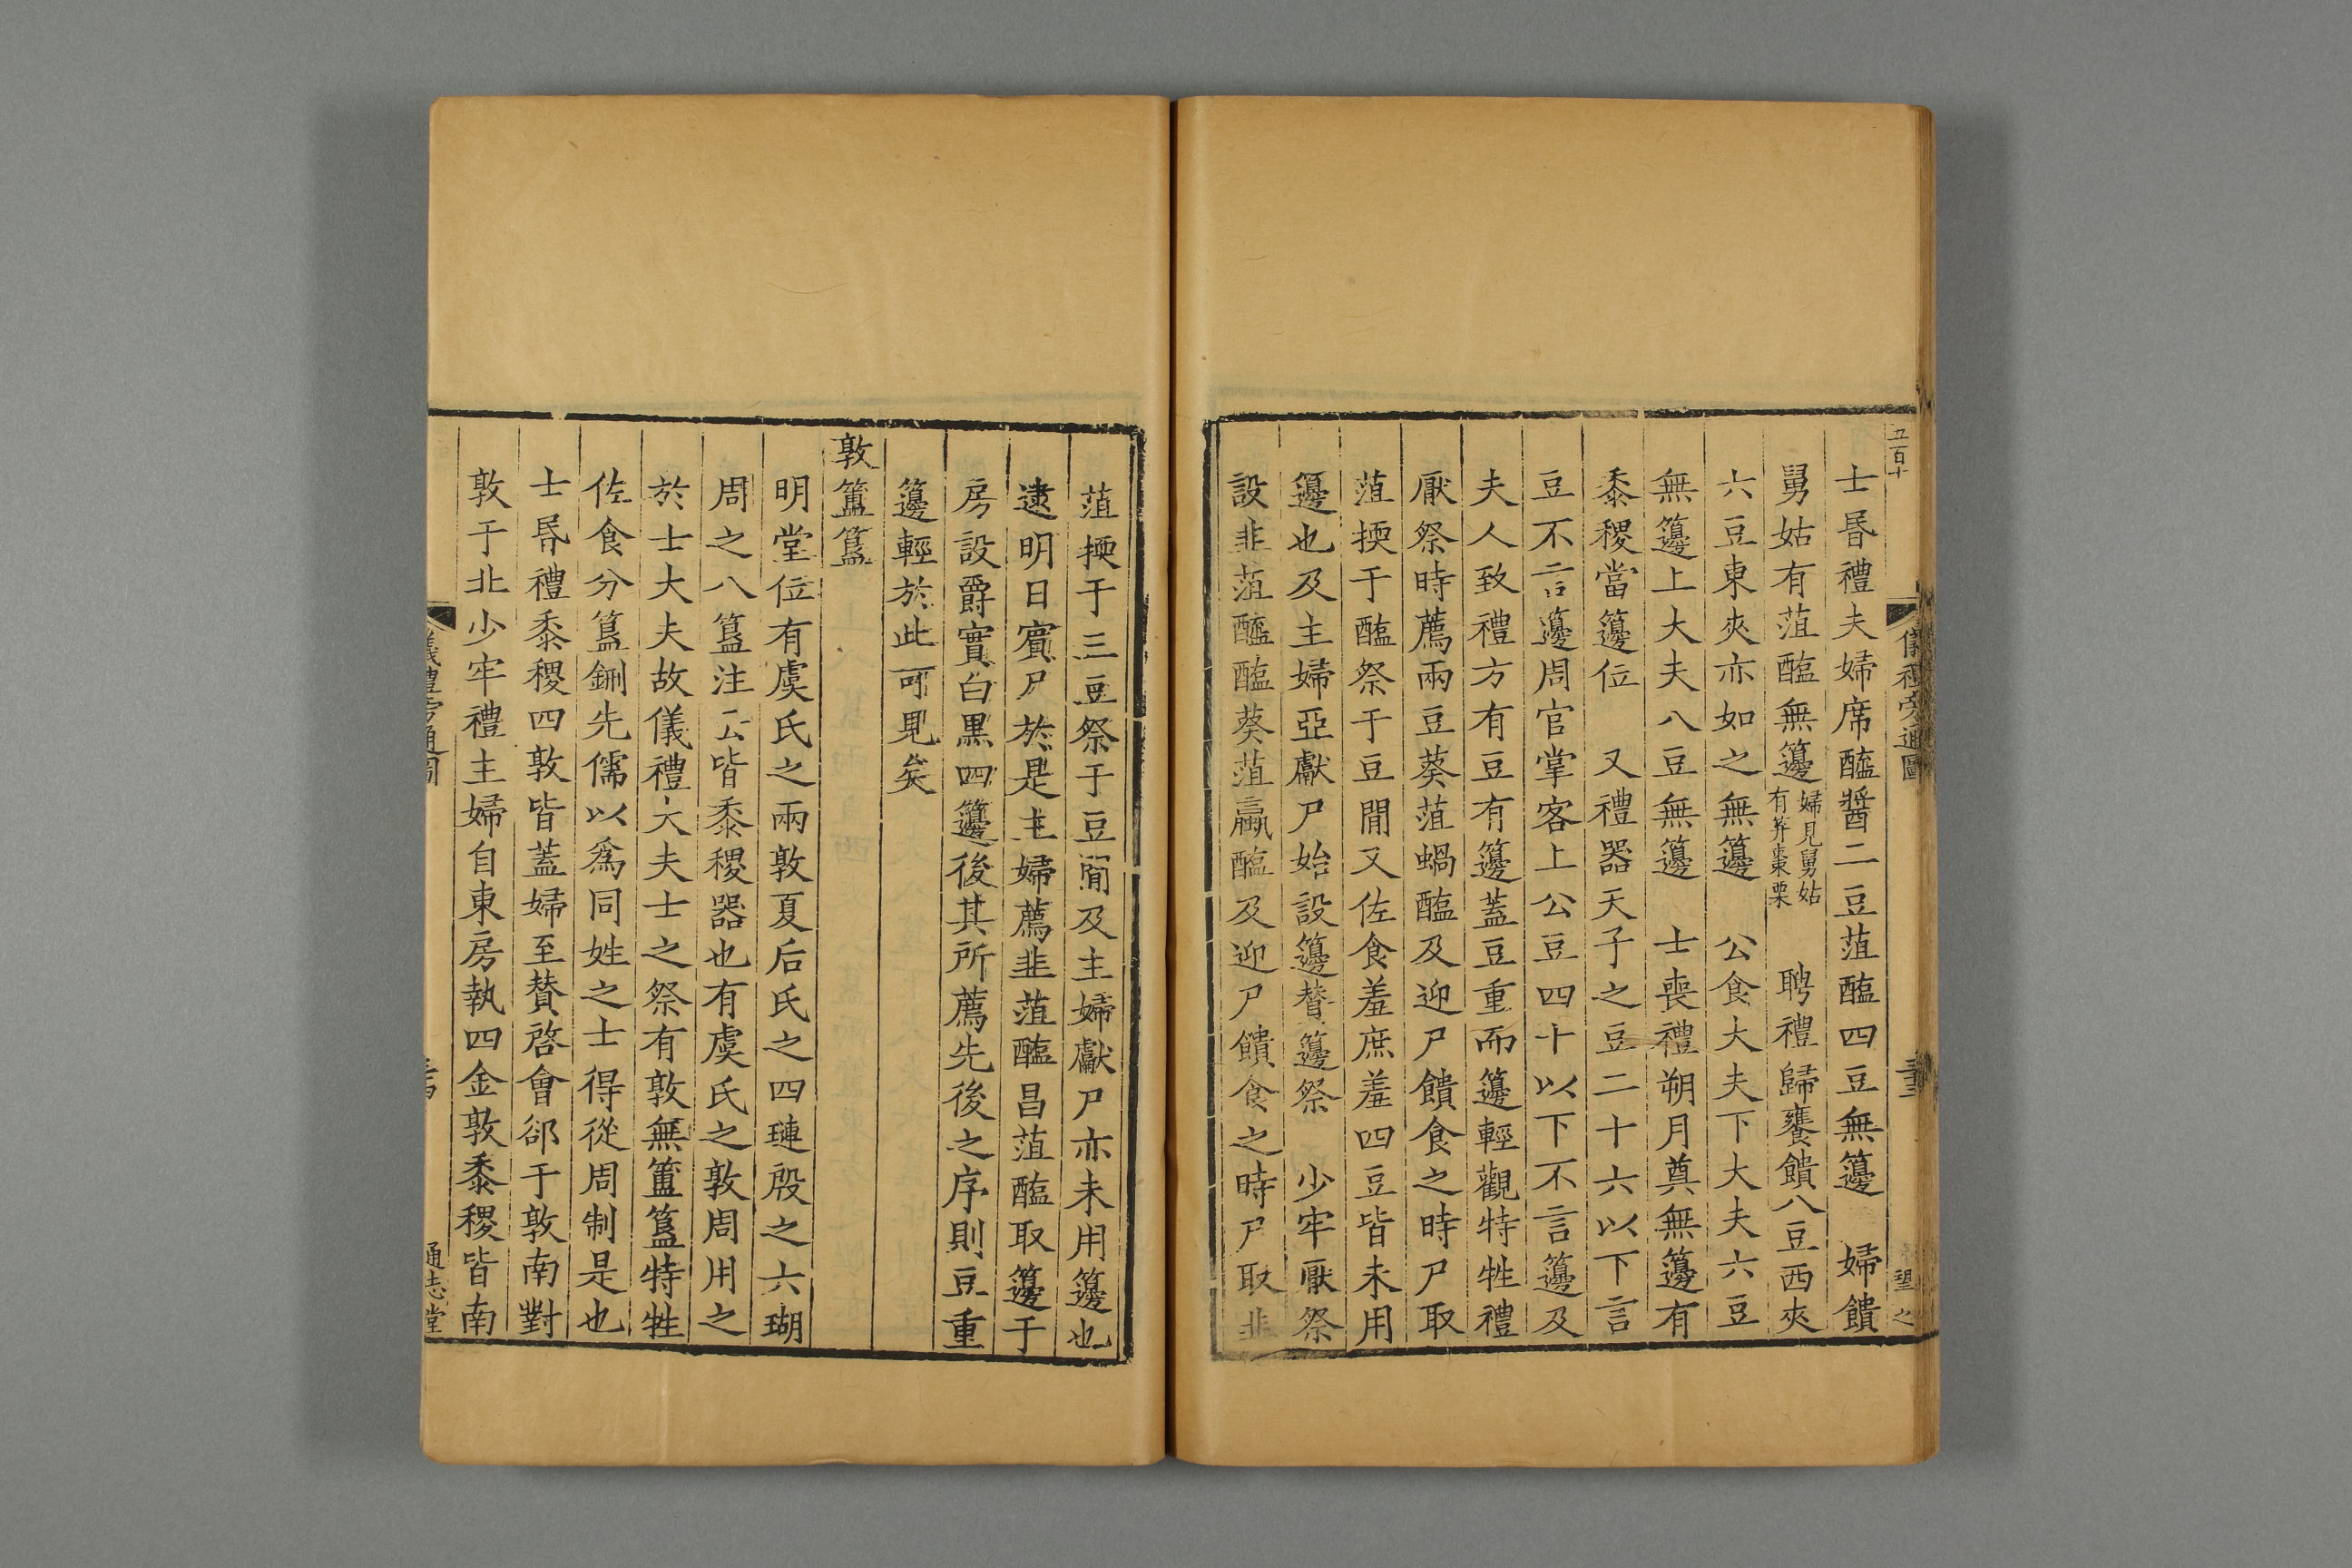 五百十
儀禮旁通圖
士昬禮夫婦席醯醬二豆菹醢四豆無籩 婦饋
舅姑有菹醢無籩婦見舅姑有笲棗栗 聘禮歸饔饋八豆西夾
六豆東夾亦如之無籩 公食大夫下大夫六豆
無籩上大夫八豆無籩 士喪禮朔月奠無籩有
黍稷當籩位 又禮器天子之豆二十六以下言
豆不言籩周官掌客上公豆四十以下不言籩及
夫人致禮方有豆有籩蓋豆重而籩輕觀特牲禮
厭祭時薦兩豆葵菹蝸醢及迎尸饋食之時尸取
菹㨎于醢祭于豆間又佐食羞庶羞四豆皆未用
籩也及主婦亞獻尸始設籩贊籩祭 少牢厭祭
設韭菹醓醢葵菹蠃醢及迎尸饋食之時尸取韭
菹㨎于三豆祭于豆間及主婦獻尸亦未用籩也
逮明日賓尸於是主婦薦韭菹醓昌菹醢取籩于
房設爵實白黑四籩後其所薦先後之序則豆重
籩輕於此可見矣
敦簠簋
明堂位有虞氏之兩敦夏后氏之四璉殷之六瑚
周之八簋注云皆黍稷器也有虞氏之敦周用之
於士大夫故儀禮大夫士之祭有敦無簠簋特牲
佐食分簋鉶先儒以爲同姓之士得從周制是也
士昬禮黍稷四敦皆蓋婦至贊啓會郤于敦南對
敦于北少牢禮主婦自東房執四金敦黍稷皆南
儀禮旁通圖
通志堂